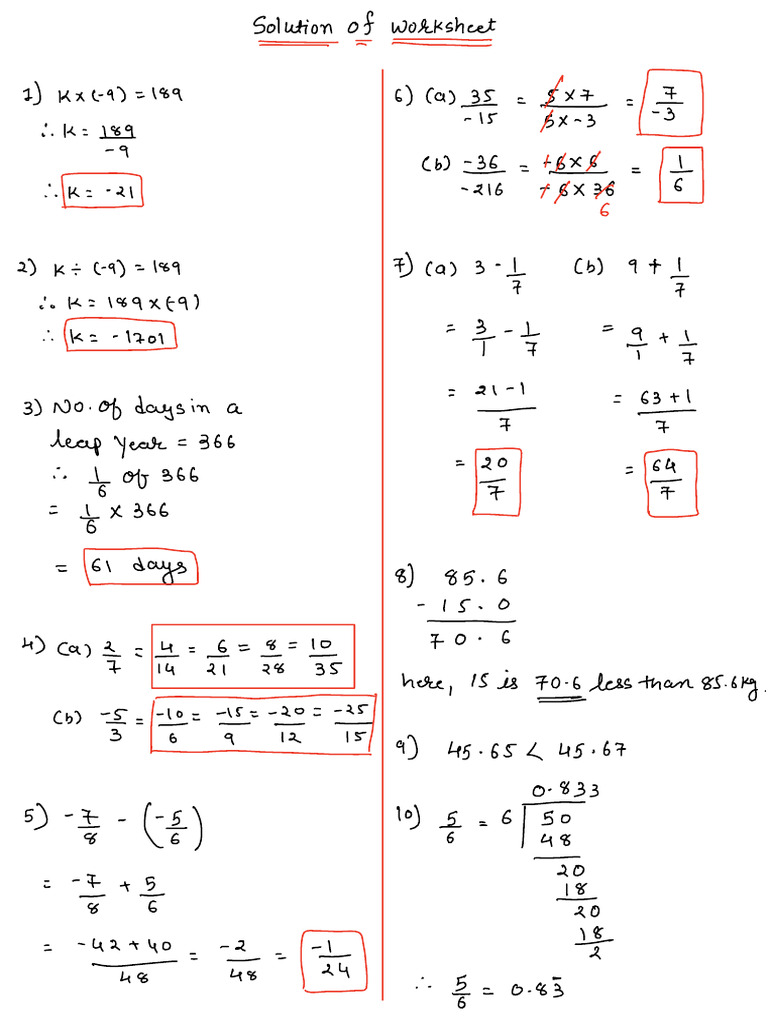 Solution of worksheet
1) K × (-9) = 189
∴ K = 189/-9
∴ K = -21
2) K ÷ (-9) = 189
∴ K = 189 × (-9)
∴ K = -1701
3) No. of days in a
leap year = 366
∴ 1/6 of 366
= 1/6 × 366
= 61 days
4) (a) 2/7 = 4/14 = 6/21 = 8/28 = 10/35
(b) -5/3 = -10/6 = -15/9 = -20/12 = -25/15
5) -7/8 - (-5/6)
= -7/8 + 5/6
= -42 + 40/48 = -2/48 = -1/24
6) (a) 35/-15 = 5 × 7/5 × -3 = 7/-3
(b) -36/-216 = -6 × 6/-6 × 36 = 1/6
6
7) (a) 3 - 1/7 (b) 9 + 1/7
= 3/1 - 1/7 = 9/1 + 1/7
= 21 - 1/7 = 63 + 1/7
= 20/7 = 64/7
8) 85.6
- 15.0
70.6
here, 15 is 70.6 less than 85.6kg.
9) 45.65 < 45.67
0.833
10) 5/6 = 6 50
48
20
18
20
18
2
∴ 5/6 = 0.83̄